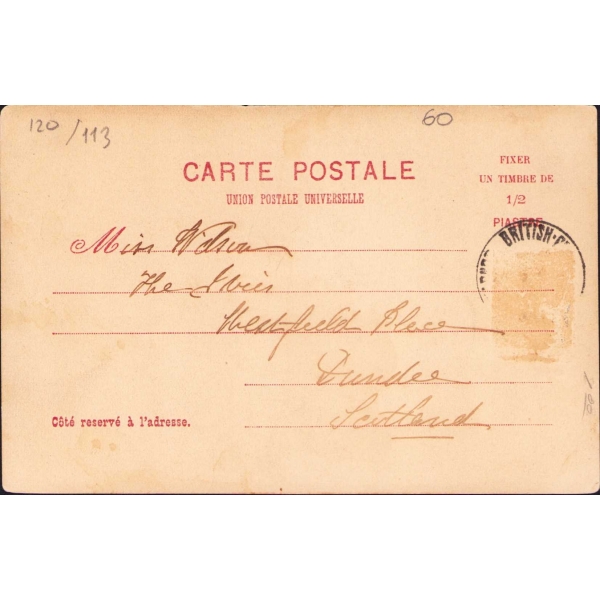 120/113
60
CARTE POSTALE
UNION POSTALE UNIVERSELLE
FIXER
UN TIMBRE DE
1/2
PIASTRE
BRITISH
Miss Wilson
The
Westfield Place
Dundee
Scotland
Côté reservé à l'adresse.